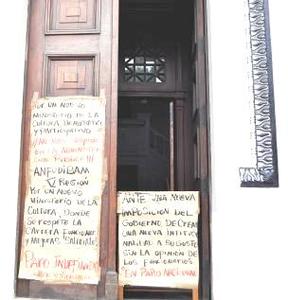 POR UN NUEVO
MINISTERIO DE LA
CULTURA DEMOCRATICO
Y PARTICIPATIVO
ANFUDIBAM
V REGIÓN
POR UN NUEVO
MINISTERIO DE LA
CULTURA, DONDE
SE RESPETE LA
CARRERA FUNCIONARIA
Y MEJORAS SALARIALES
PARO INDEFINIDO
ANTE UNA NUEVA
IMPOSICION DEL
GOBIERNO DE CREAR
UNA NUEVA INSTITUC
A SU GUSTO
SIN LA OPINION DE
LOS FUNCIONARIOS
EN PARO NACIONAL